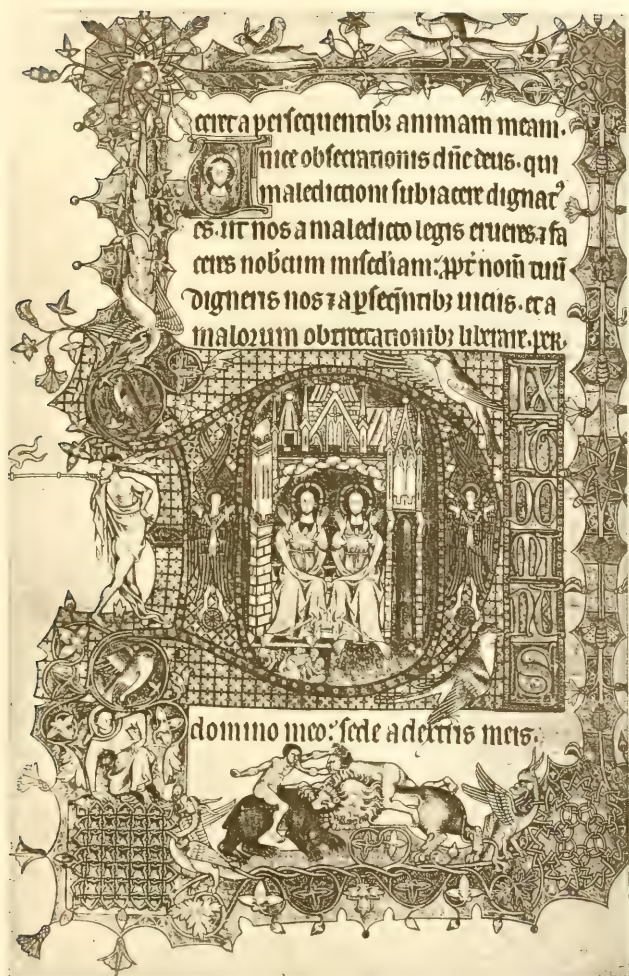 ceret a persequentib; animam meam.
nice obsecrationis dn̄e deus. qui
maledictioni subiacere dignat᷒
es. ut nos a maledicto legis erueres. ⁊ fa
ceres nobcum mis̄c̄diam: ꝓpt̄ nom̄ tuū
digneris nos ⁊ a ꝑseq̄ntib; uiciis. et a
malorum obtrectationib; liberare. per.
DIXIT DOMINUS
domino meo: sede a dextris meis.